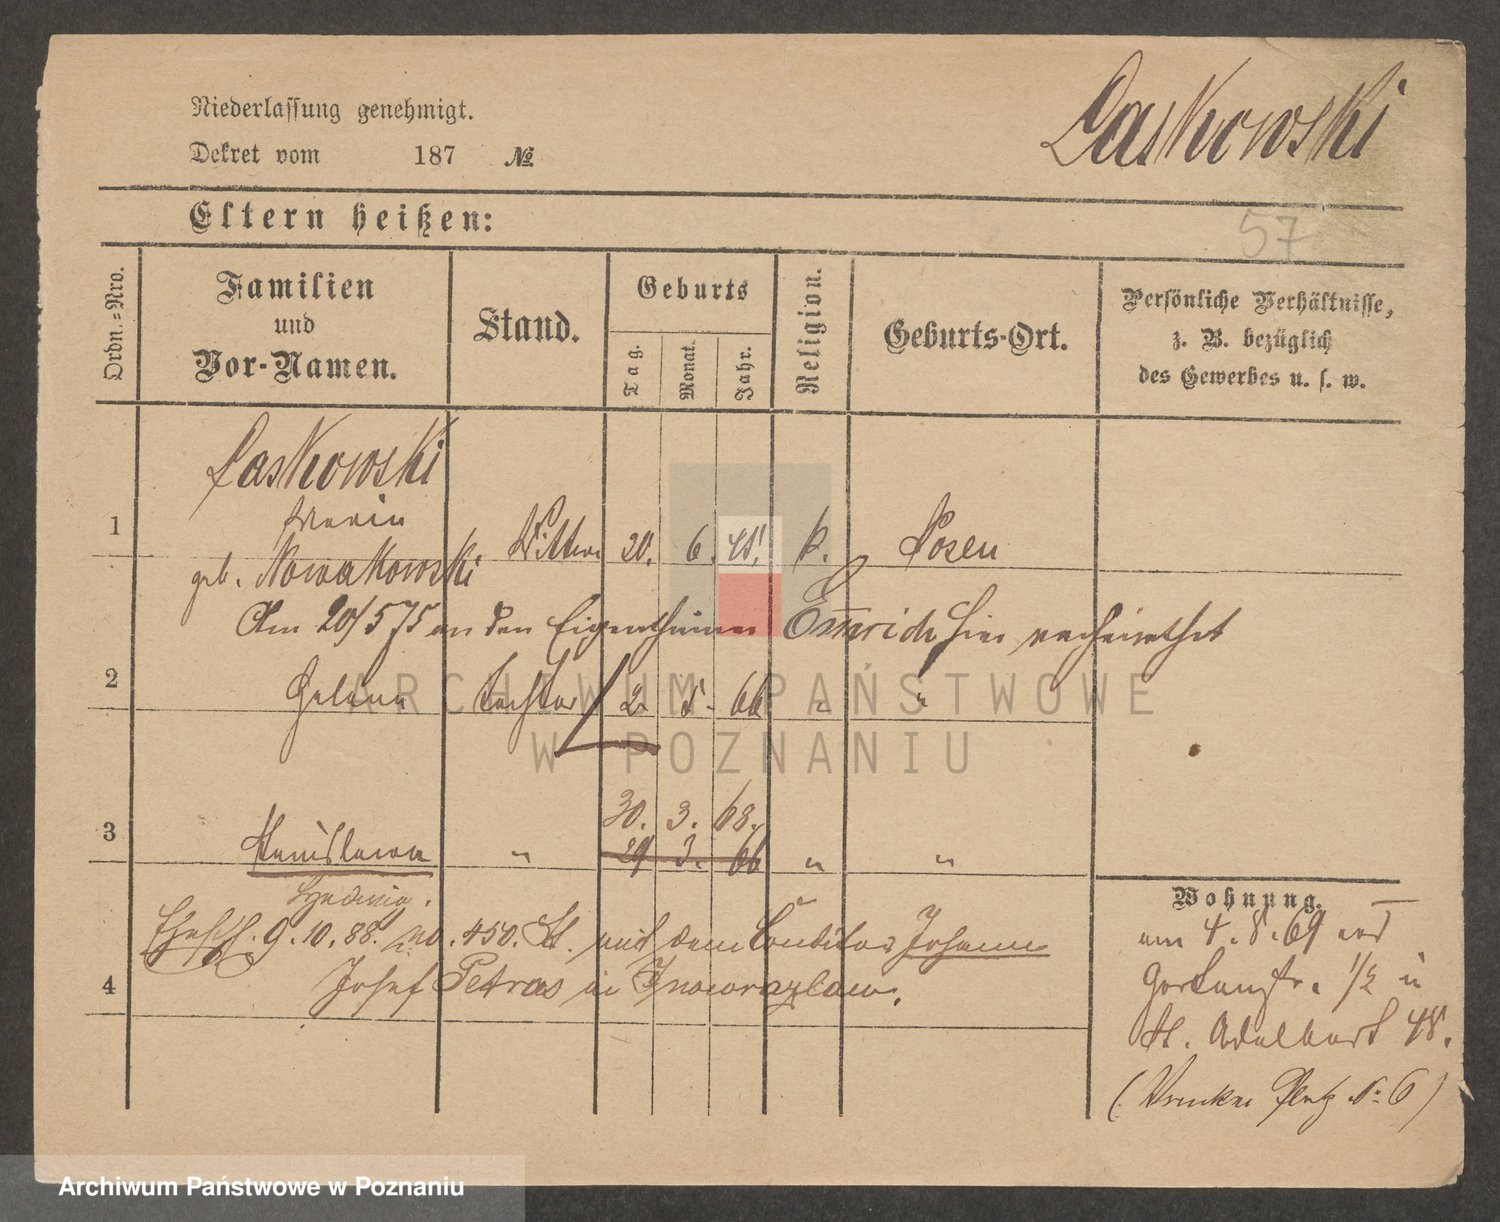 Niederlassung genehmigt.
Laskowski
Dekret vom 187 No.
Eltern heißen:
57
Ordn.-Nro.
Familien und Vor-Namen.
Stand.
Geburts
Tag.
Monat.
Jahr.
Religion.
Geburts-Ort.
Persönliche Verhältnisse,
z. B. bezüglich
des Gewerbes u. s. w.
Laskowski
1 Wittwe 20. 6. k. Posen
geb. Nowakowski
Am 20/5 75 an den Eigenthümer Emrich hier verheirathet
2 Helena Tochter 2. 5. 66 " "
30. 3. 68.
3 Stanislawa " 29 3. 66 " "
Wohnung.
Hedwig.
Ehesch. 9.10.88. No. 450. St. mit dem Conditor Johann
am 4.8.69 
4 Josef Petras in Inowrazlaw.
Gartenstr. 1/2 
St. Adalbert 48.
Platz No 6)
ARCHIWUM PAŃSTWOWE
W POZNANIU
Archiwum Państwowe w Poznaniu